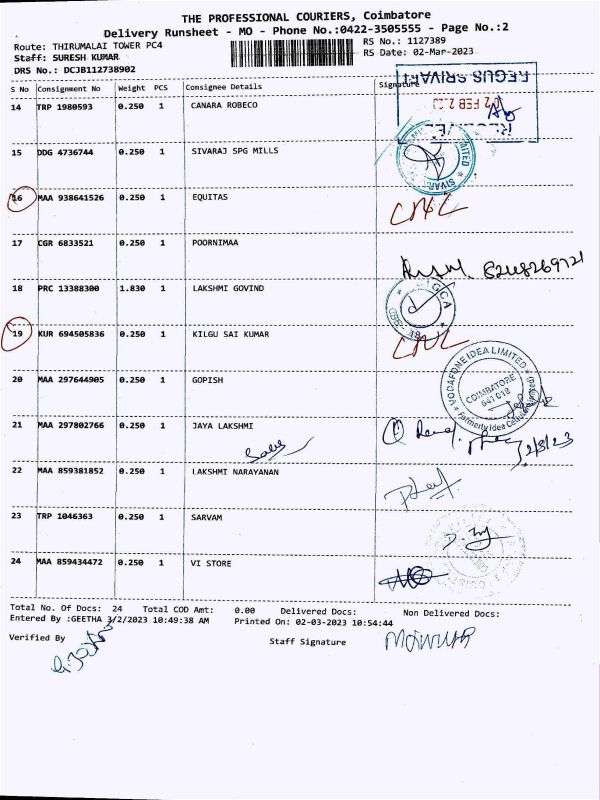 THE PROFESSIONAL COURIERS, Coimbatore
Delivery Runsheet - MO - Phone No.:0422-3505555 - Page No.:2
Route: THIRUMALAI TOWER PC4 RS No.: 1127389
Staff: SURESH KUMAR RS Date: 02-Mar-2023
DRS No.: DCJB112738902
S No Consignment No Weight PCS Consignee Details Signature
REGUS SRIVARI
02 FEB 2
RECEIVED
14 TRP 1980593 0.250 1 CANARA ROBECO
15 DDG 4736744 0.250 1 SIVARAJ SPG MILLS
16 MAA 938641526 0.250 1 EQUITAS
17 CGR 6833521 0.250 1 POORNIMAA
8248269721
18 PRC 13388300 1.830 1 LAKSHMI GOVIND
19 KUR 694505836 0.250 1 KILGU SAI KUMAR
VODAFONE IDEA LIMITED
COIMBATORE
641 018
20 MAA 297644905 0.250 1 GOPISH
21 MAA 297802766 0.250 1 JAYA LAKSHMI
2/3/23
22 MAA 859381852 0.250 1 LAKSHMI NARAYANAN
23 TRP 1046363 0.250 1 SARVAM
24 MAA 859434472 0.250 1 VI STORE
Total No. Of Docs: 24 Total COD Amt: 0.00 Delivered Docs: Non Delivered Docs:
Entered By :GEETHA 3/2/2023 10:49:38 AM Printed On: 02-03-2023 10:54:44
Verified By Staff Signature